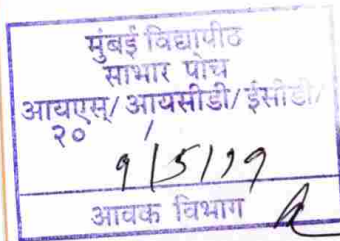 मुंबई विद्यापीठ
साभार पोच
आयएस/ आयसीडी/ ईसीडी/
२० /
9/5/19
आवक विभाग